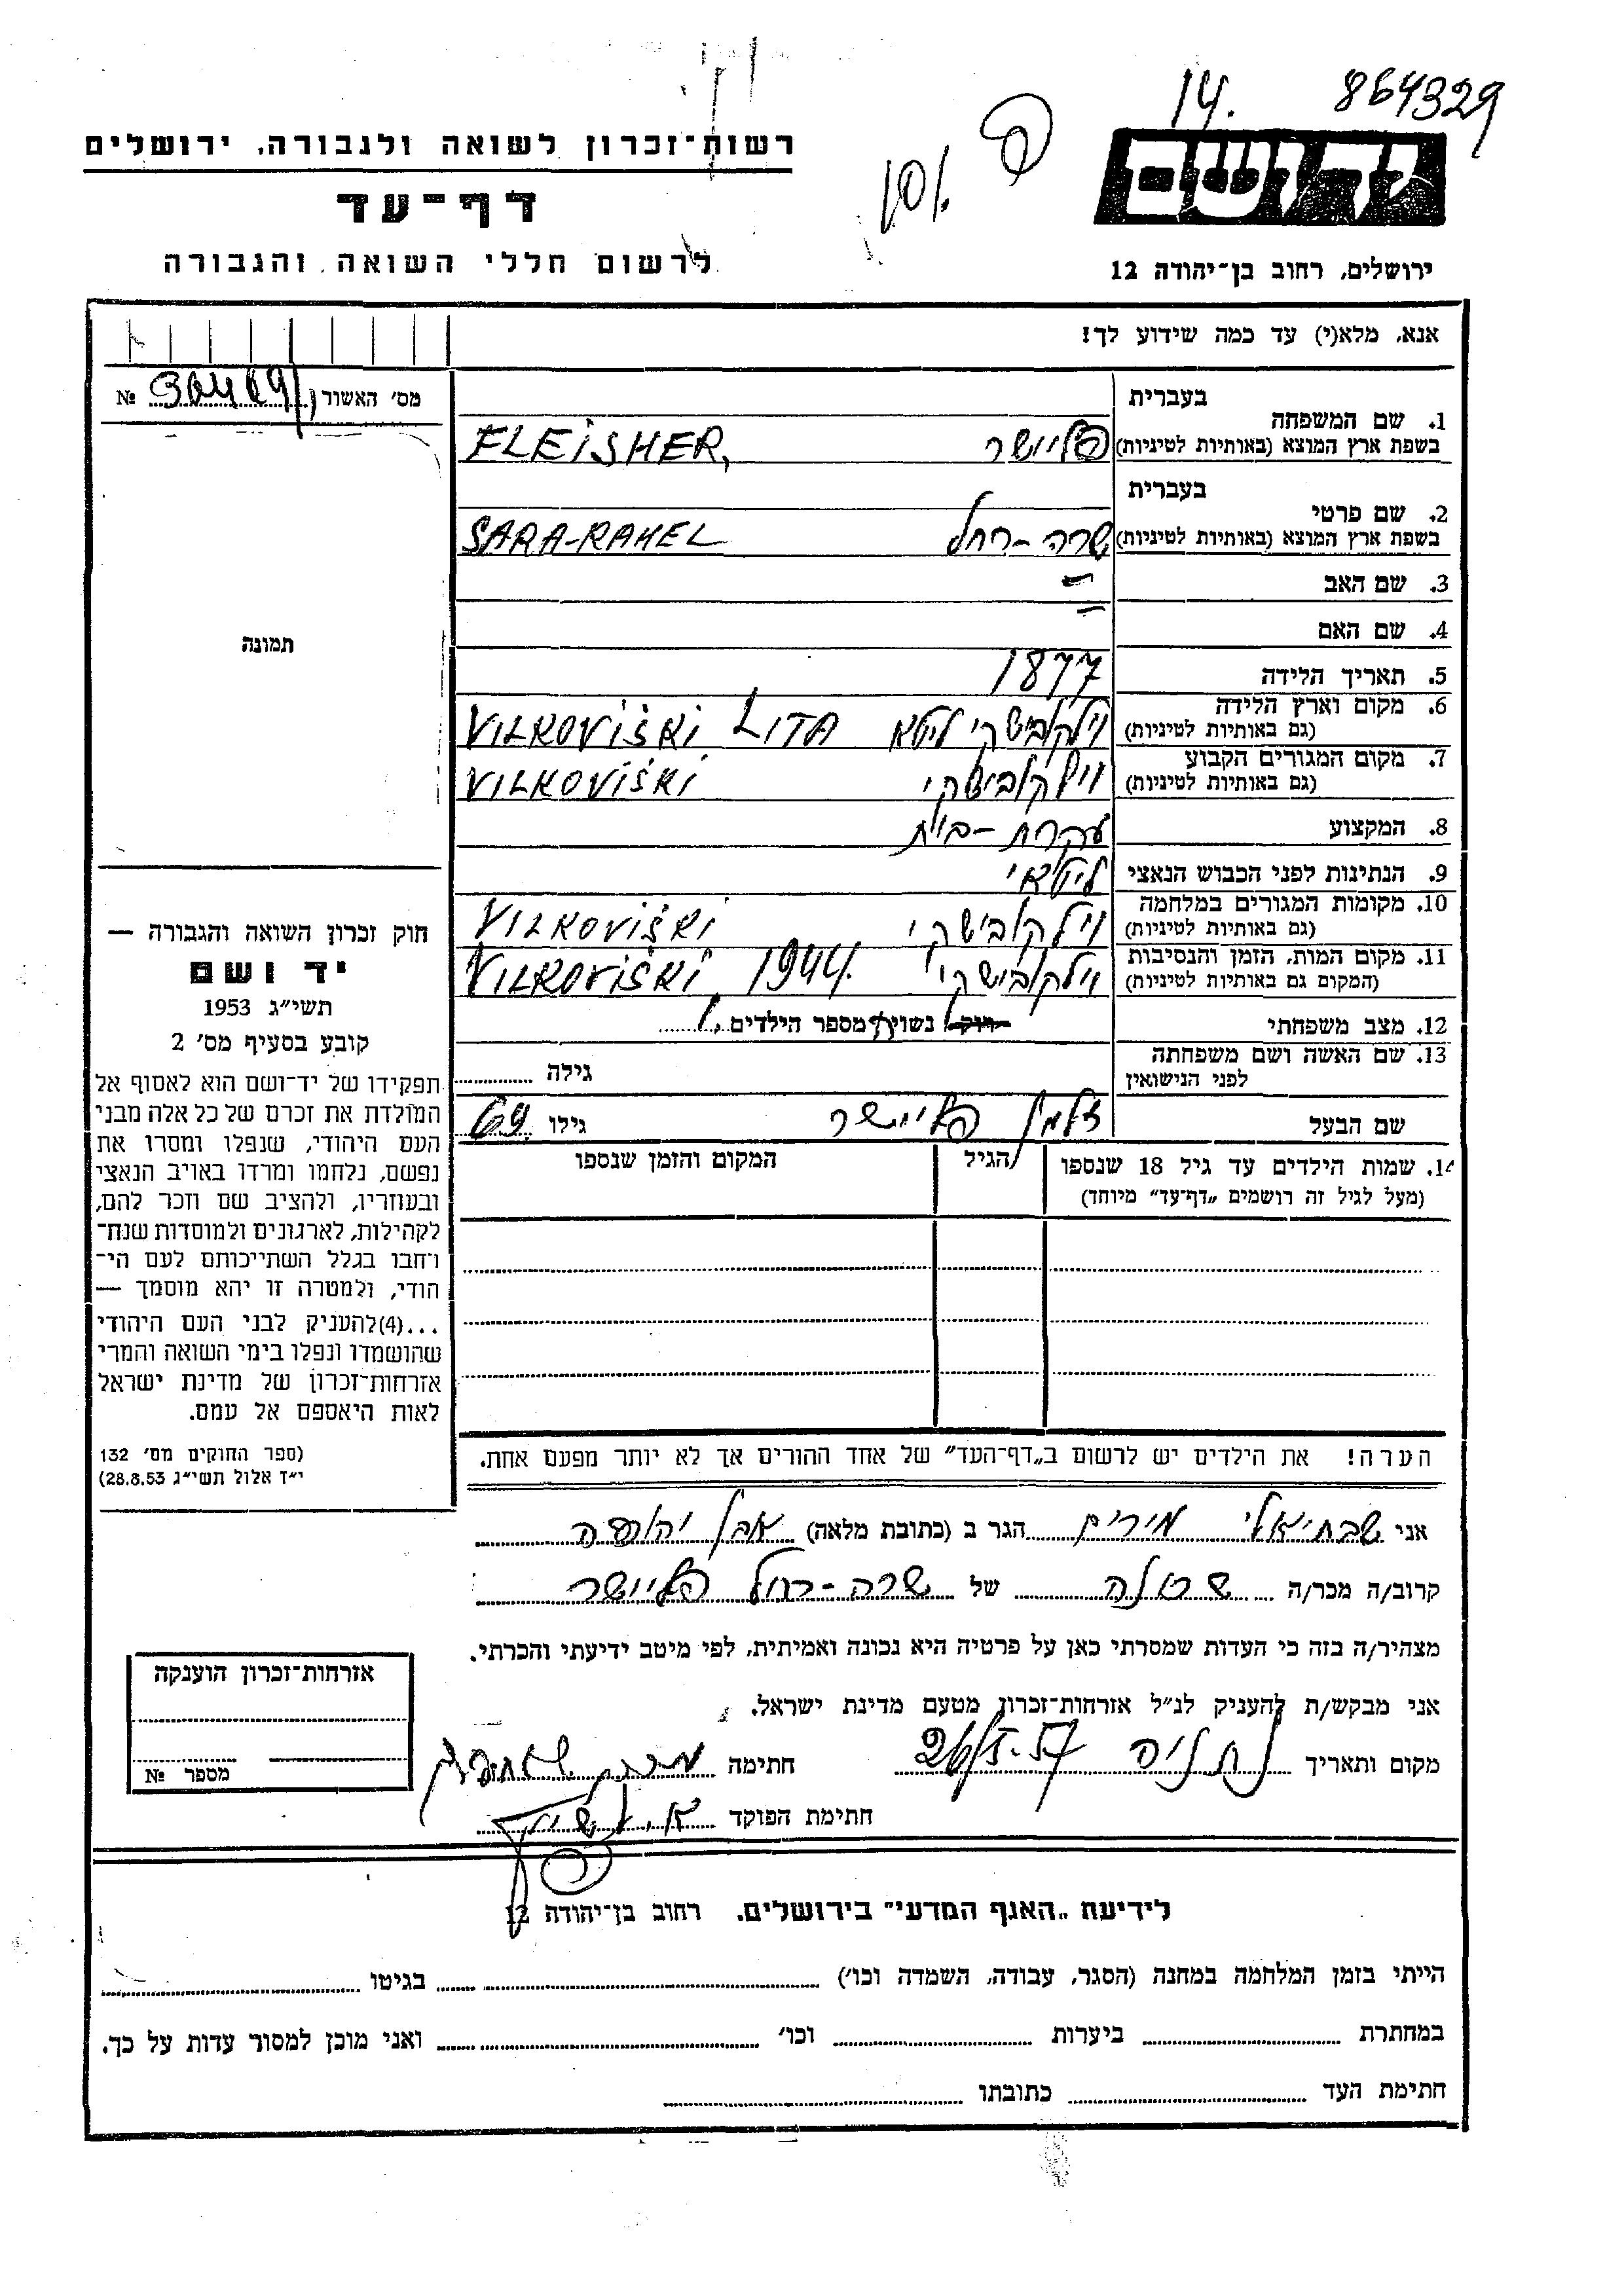 14. 864329
רשות־זכרון לשואה ולגבורה, ירושלים
יד ושם
דף־עד
לרשום חללי השואה והגבורה
ירושלים, רחוב בן־יהודה 12
אנא, מלא(י) עד כמה שידוע לך!
מס׳ האשור №
בעברית
1. שם המשפחה
בשפת ארץ המוצא (באותיות לטיניות) פליישר FLEISHER,
בעברית
2. שם פרטי
בשפת ארץ המוצא (באותיות לטיניות) שרה-רחל SARA-RAHEL
3. שם האב –
4. שם האם –
תמונה
5. תאריך הלידה 1877
6. מקום וארץ הלידה
(גם באותיות לטיניות) וילקובישקי ליטא VILKOVIŠKI LITA
7. מקום המגורים הקבוע
(גם באותיות לטיניות) וילקובישקי VILKOVIŠKI
8. המקצוע עקרת-בית
9. הנתינות לפני הכבוש הנאצי ליטאי
10. מקומות המגורים במלחמה
(גם באותיות לטיניות) וילקובישקי VILKOVIŠKI
11. מקום המות, הזמן והנסיבות
(המקום גם באותיות לטיניות) וילקובישקי VILKOVIŠKI, 1944.
12. מצב משפחתי רווק/ נשוי/ מספר הילדים
13. שם האשה ושם משפחתה
לפני הנישואין גילה
שם הבעל זלמן פליישר גילו 69
14. שמות הילדים עד גיל 18 שנספו הגיל המקום והזמן שנספו
(מעל לגיל זה רושמים „דף־עד” מיוחד)
חוק זכרון השואה והגבורה —
יד ושם
תשי״ג 1953
קובע בסעיף מס׳ 2
תפקידו של יד־ושם הוא לאסוף אל
המולדת את זכרם של כל אלה מבני
העם היהודי, שנפלו ומסרו את
נפשם, נלחמו ומרדו באויב הנאצי
ובעוזריו, ולהציב שם וזכר להם,
לקהילות, לארגונים ולמוסדות שנח־
רחבו בגלל השתייכותם לעם הי־
הודי, ולמטרה זו יהא מוסמך —
...(4)להעניק לבני העם היהודי
שהושמדו ונפלו בימי השואה והמרי
אזרחות־זכרון של מדינת ישראל
לאות היאספם אל עמם.
(ספר החוקים מס׳ 132
י״ז אלול תשי״ג 28.8.53)
הערה! את הילדים יש לרשום ב„דף־העד” של אחד ההורים אך לא יותר מפעם אחת.
אני שבתיאלי מירים הגר ב (כתובת מלאה) אבן יהודה
קרוב/ה מכר/ה של שרה-רחל פליישר
מצהיר/ה בזה כי העדות שמסרתי כאן על פרטיה היא נכונה ואמיתית, לפי מיטב ידיעתי והכרתי.
אני מבקש/ת להעניק לנ״ל אזרחות־זכרון מטעם מדינת ישראל.
מקום ותאריך נתניה חתימה
חתימת הפוקד
אזרחות־זכרון הוענקה
מספר №
לידיעת „האגף המדעי” בירושלים, רחוב בן־יהודה 12
הייתי בזמן המלחמה במחנה (הסגר, עבודה, השמדה וכו׳) בגיטו
במחתרת ביערות וכו׳ ואני מוכן למסור עדות על כך.
חתימת העד כתובתו